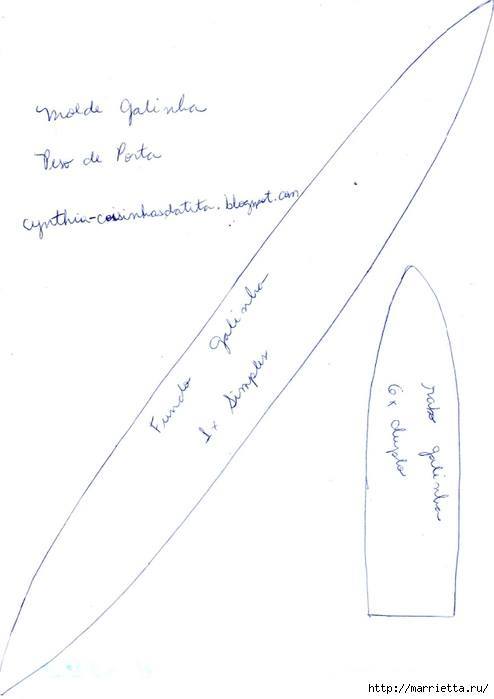 Molde Galinha
Peso de Porta
cynthia-coisinhasdatita.blogspot.com
Fundo galinha
1x Simples
rabo galinha
6x duplo
http://marrietta.ru/